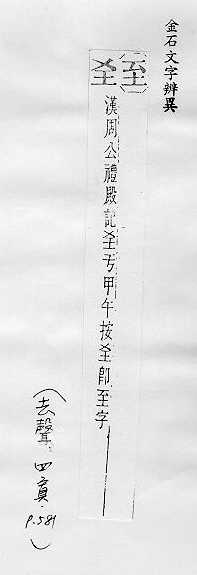 金石文字辨異
(至)
漢周公禮殿記亏甲午按即至字
(去聲 四寘 P.581)